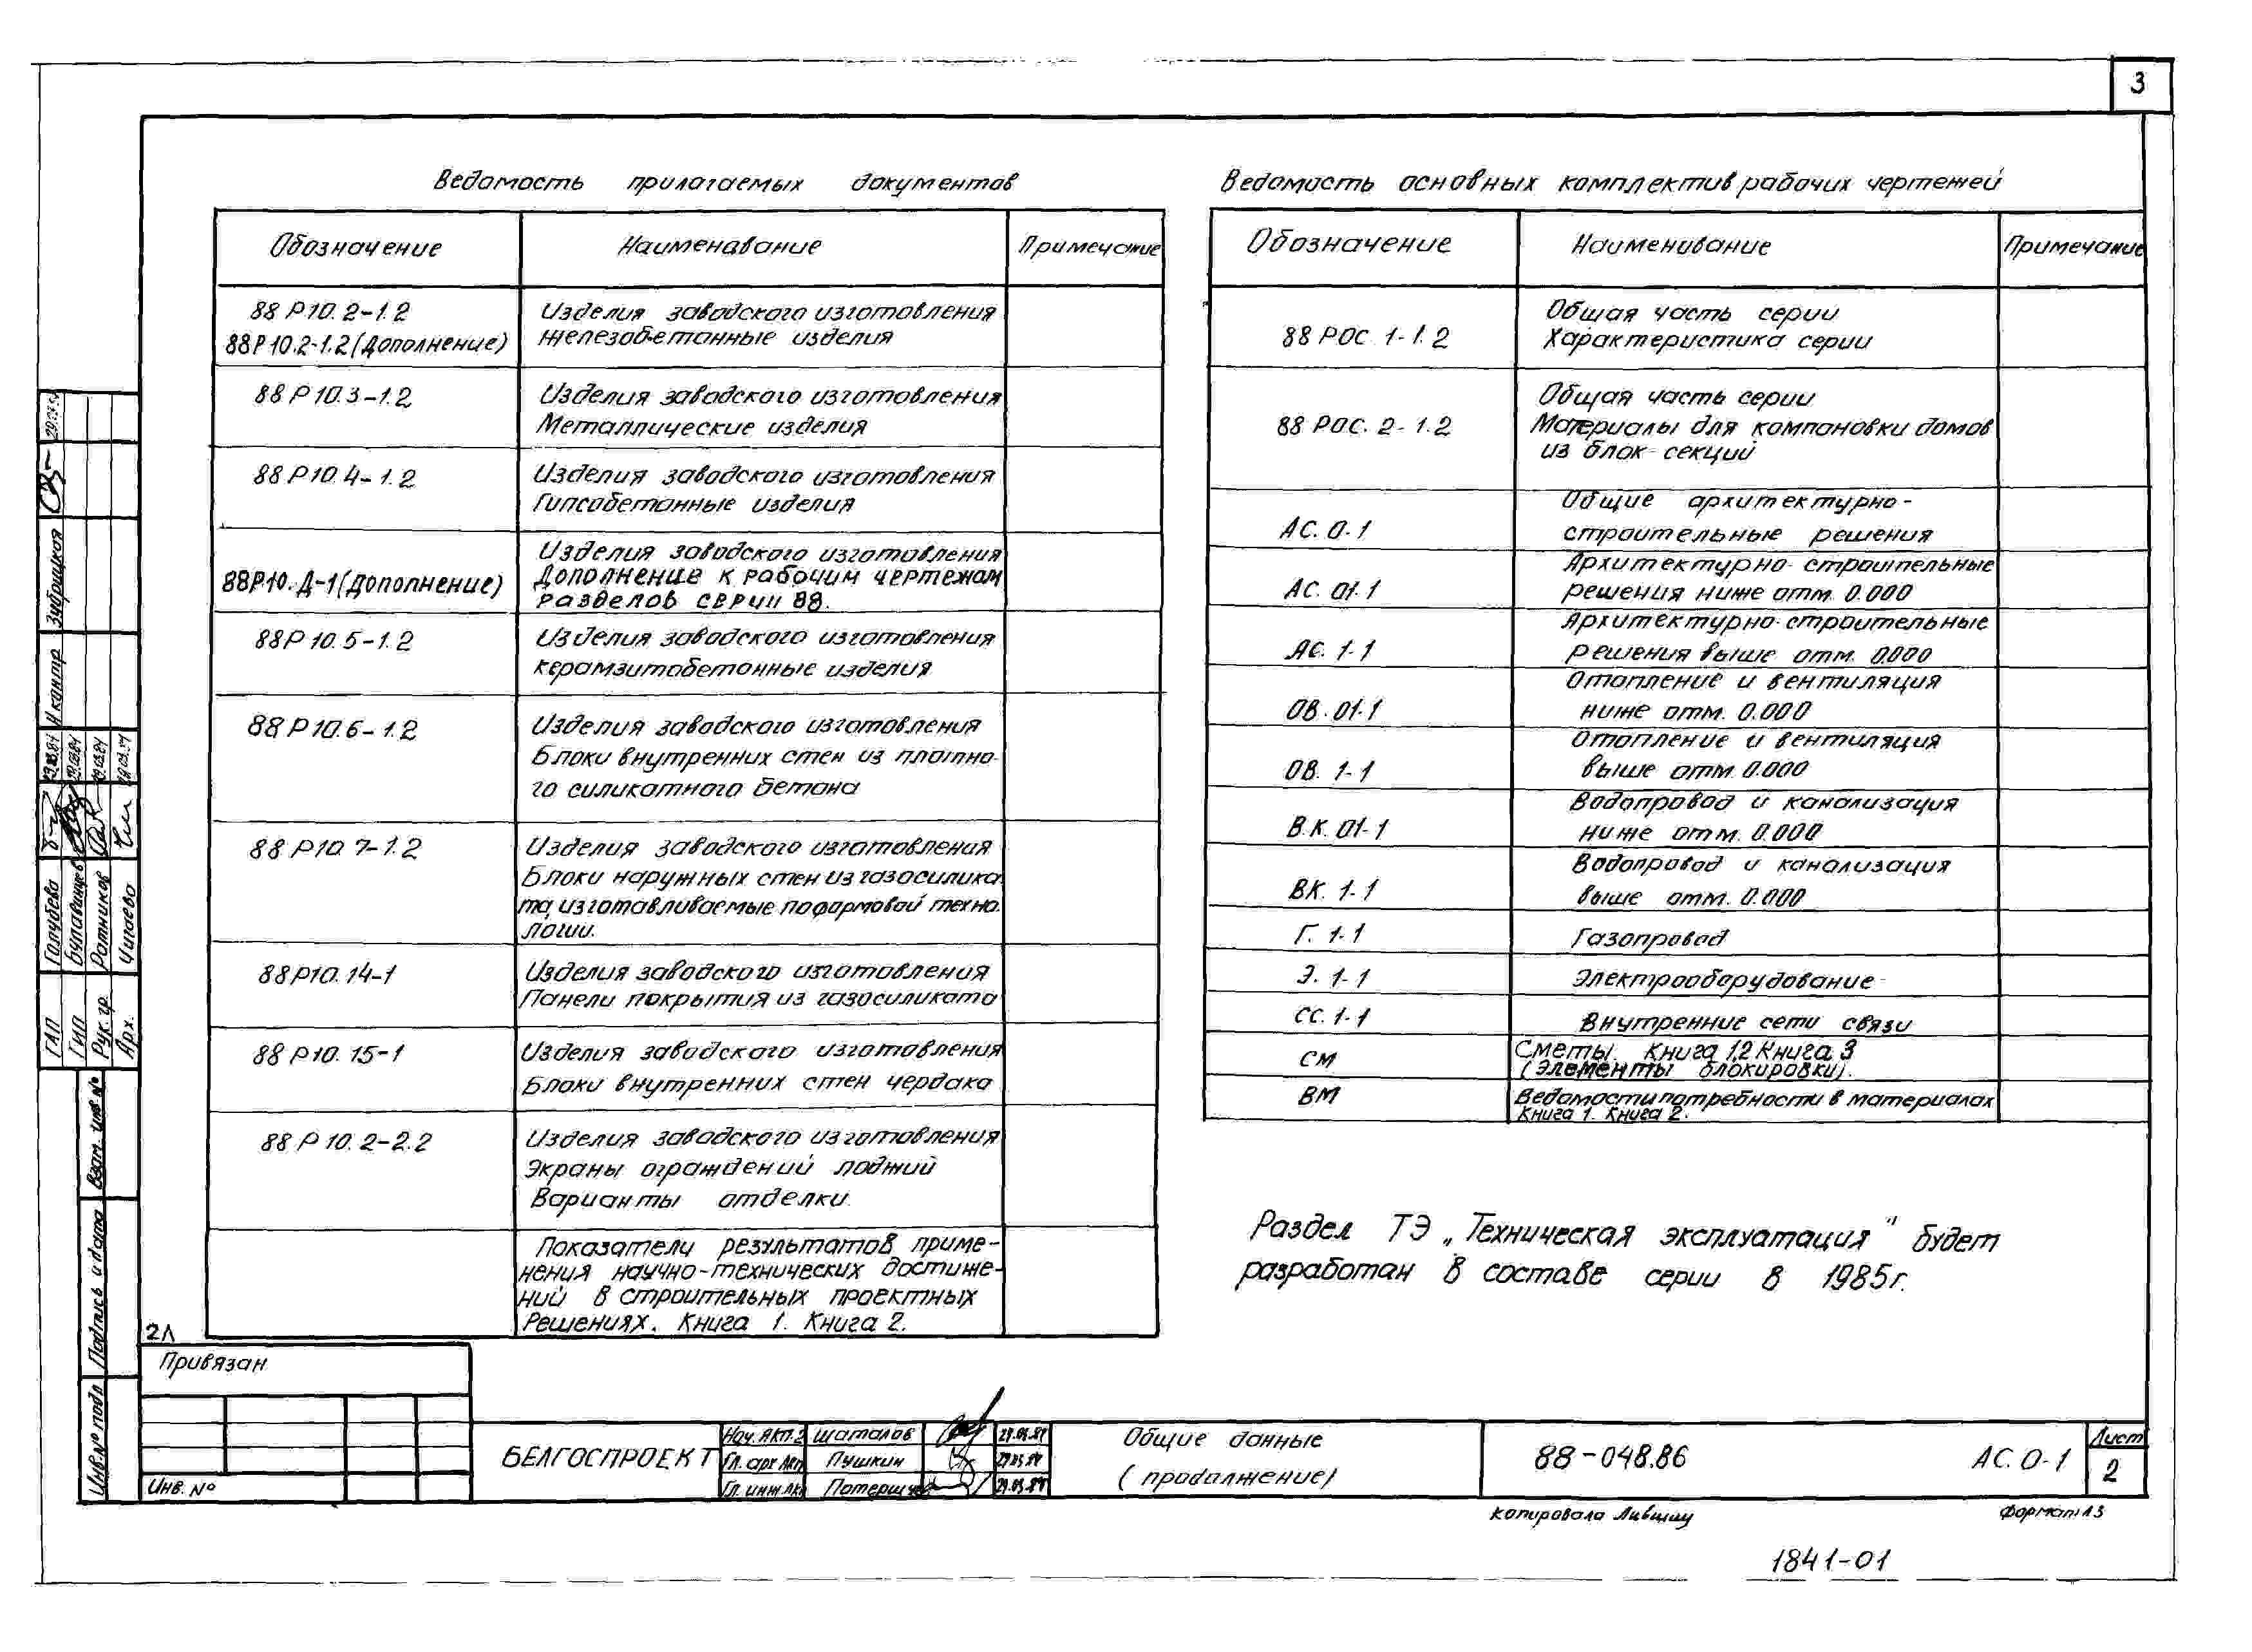 3
Ведомость прилагаемых документов
Обозначение Наименование Примечание
88 Р10.2-1.2
88Р10.2-1.2(Дополнение)
Изделия заводского изготовления
железобетонные изделия
88 Р10.3-1.2
Изделия заводского изготовления
Металлические изделия
88 Р10.4-1.2
Изделия заводского изготовления
Гипсобетонные изделия
88Р10.Д-1(Дополнение)
Изделия заводского изготовления
Дополнение к рабочим чертежам
разделов серии 88.
88Р 10.5-1.2
Изделия заводского изготовления
керамзитобетонные изделия
88 Р10.6-1.2
Изделия заводского изготовления
Блоки внутренних стен из плотно-
го силикатного бетона
88 Р10.7-1.2
Изделия заводского изготовления
Блоки наружных стен из газосилика
та, изготавливаемые по формовой техно-
логии.
88Р10.14-1
Изделия заводского изготовления
Панели покрытия из газосиликата
88 Р10.15-1
Изделия заводского изготовления
Блоки внутренних стен чердака
88 Р 10.2-2.2
Изделия заводского изготовления
Экраны ограждений лоджий
Варианты отделки.
Показатели результатов приме-
нения научно-технических достиже-
ний в строительных проектных
Решениях. Книга 1. Книга 2.
Ведомость основных комплектов рабочих чертежей
Обозначение Наименование Примечание
88 РОС. 1-1.2
Общая часть серии
Характеристика серии
88 РОС. 2-1.2
Общая часть серии
Материалы для компановки домов
из блок-секций
АС. 0-1
Общие архитектурно-
строительные решения
АС. 01-1
Архитектурно-строительные
решения ниже отм. 0.000
АС. 1-1
Архитектурно-строительные
решения выше отм. 0.000
ОВ. 01-1
Отопление и вентиляция
ниже отм. 0.000
ОВ. 1-1
Отопление и вентиляция
выше отм. 0.000
В.К. 01-1
Водопровод и канализация
ниже отм. 0.000
ВК. 1-1
Водопровод и канализация
выше отм. 0.000
Г. 1-1 Газопровод
Э. 1-1 Электрооборудование
СС. 1-1 Внутренние сети связи
СМ
Сметы. Книга 1,2 Книга 3
(Элементы блокировки).
ВМ
Ведомости потребности в материалах
Книга 1. Книга 2.
Раздел ТЭ „Техническая эксплуатация" будет
разработан в составе серии в 1985г.
Н контр Зубрицкая
ГАП Голубева
ГИП Булавинцев
Рук. гр. Ратников
Арх. Чигаева
Взам. инв. №
Подпись и дата
Инв. № подл
2Л
Привязан
Инв. №
БЕЛГОСПРОЕКТ
Нач. АКП.2 Шаталов 29.03.84
Гл. арх АКП Пушкин 29.03.84
Гл. инж АКП 29.03.84
Общие данные
(продолжение)
88-048.86 АС. 0-1
Лист
2
Копировала Лившиц Формат А3
1841-01